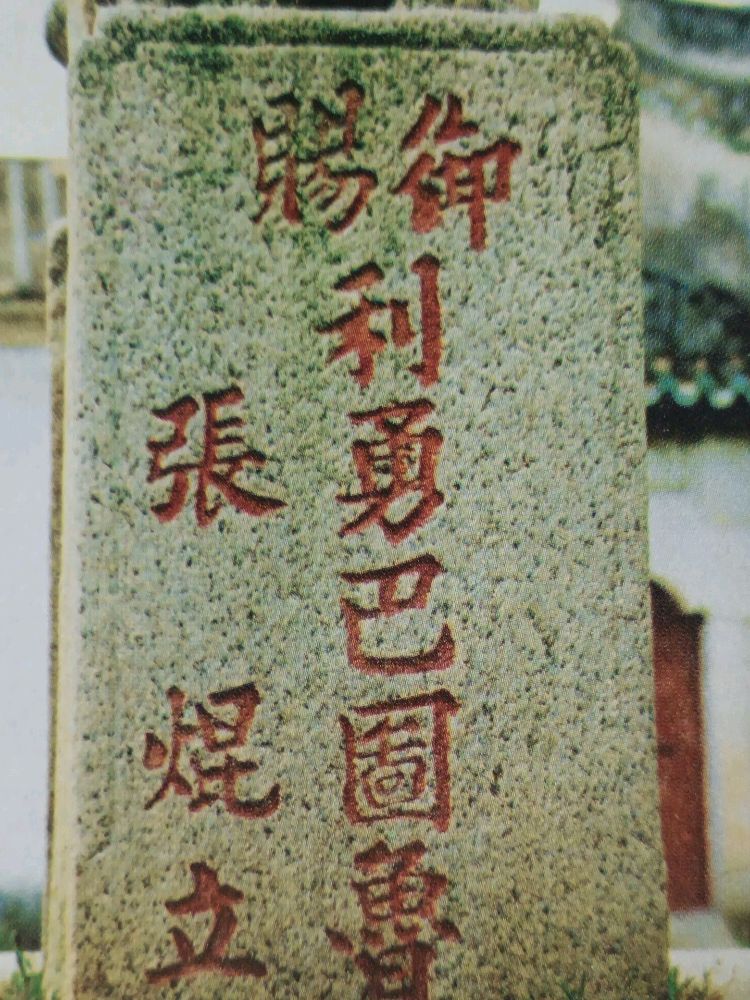 御賜
利勇巴圖魯
張焜立